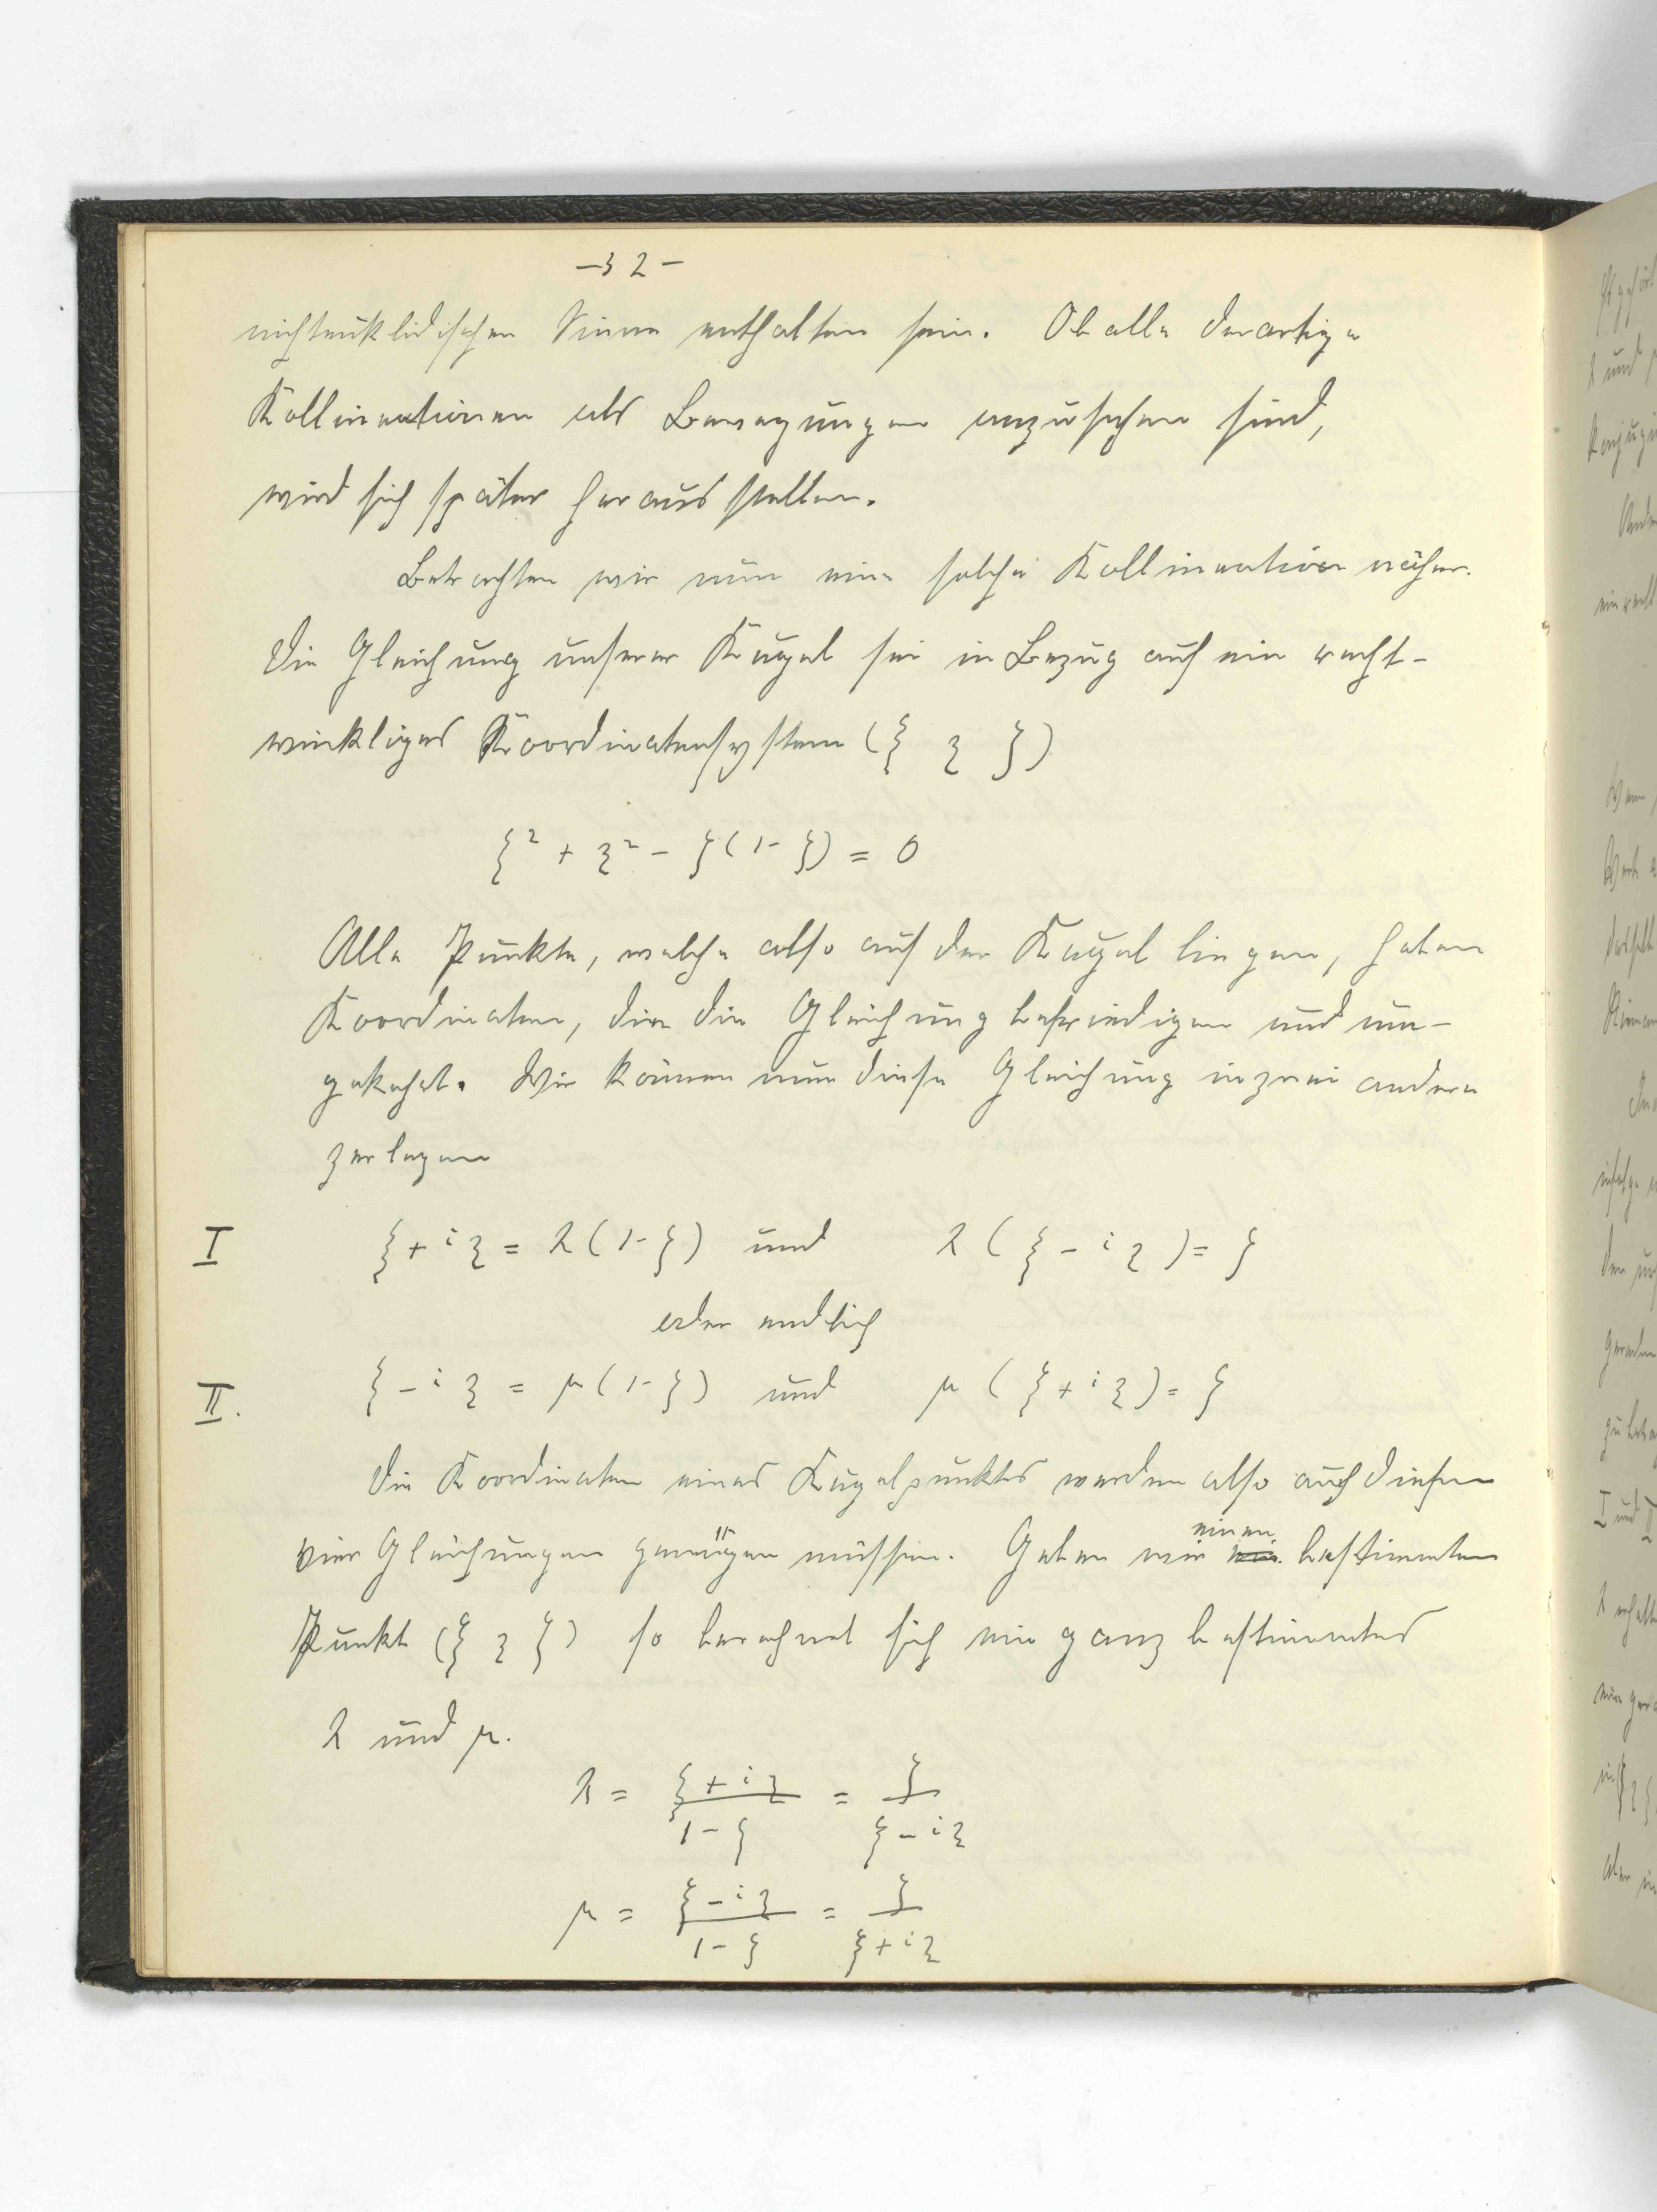 - 32 -
nichteuklidischen Sinne enthalten sein. Ob alle derartige
Kollineationen als Bewegungen anzusehen sind,
wird sich später herausstellen.
Betrachten wir nun eine solche Kollineation näher.
Die Gleichung unserer Kugel sei in Bezug auf ein recht-
winkliges Koordinatensystem (ξ η ζ)
ξ² + η² - ζ(1-ζ) = 0
Alle Punkte, welche also auf der Kugel liegen, haben
Koordinaten, die die Gleichung befriedigen und um-
gekehrt. Wir können nun diese Gleichung in zwei andere
zerlegen
I ξ + iη = λ(1-ζ) und λ(ξ - iη) = ζ
oder endlich
II. ξ - iη = μ(1-ζ) und μ(ξ + iη) = ζ
Die Koordinaten eines Kugelpunktes werden also auch diesen
vier Gleichungen genügen müssen. Geben wir einen bestimmten
Punkt (ξ η ζ) so berechnet sich ein ganz bestimmtes
λ und μ.
λ = (ξ + iη)/(1 - ζ) = ζ/(ξ - iη)
μ = (ξ - iη)/(1 - ζ) = ζ/(ξ + iη)